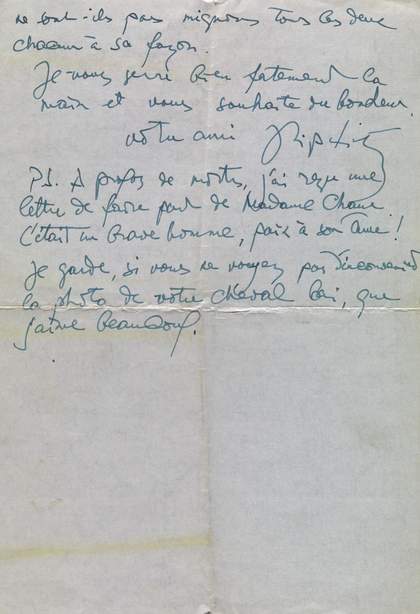 ne sont-ils pas mignons tous les deux
chacun à sa façon.
Je vous serre bien fortement la
main et vous souhaite du bonheur.
votre ami
P.S. A propos de morts, j'ai reçu une
lettre de faire part de Madame
C'était un brave homme, paix à son âme !
Je garde, si vous ne voyez pas d'inconvénient
la photo de votre cheval bai, que
j'aime beaucoup.